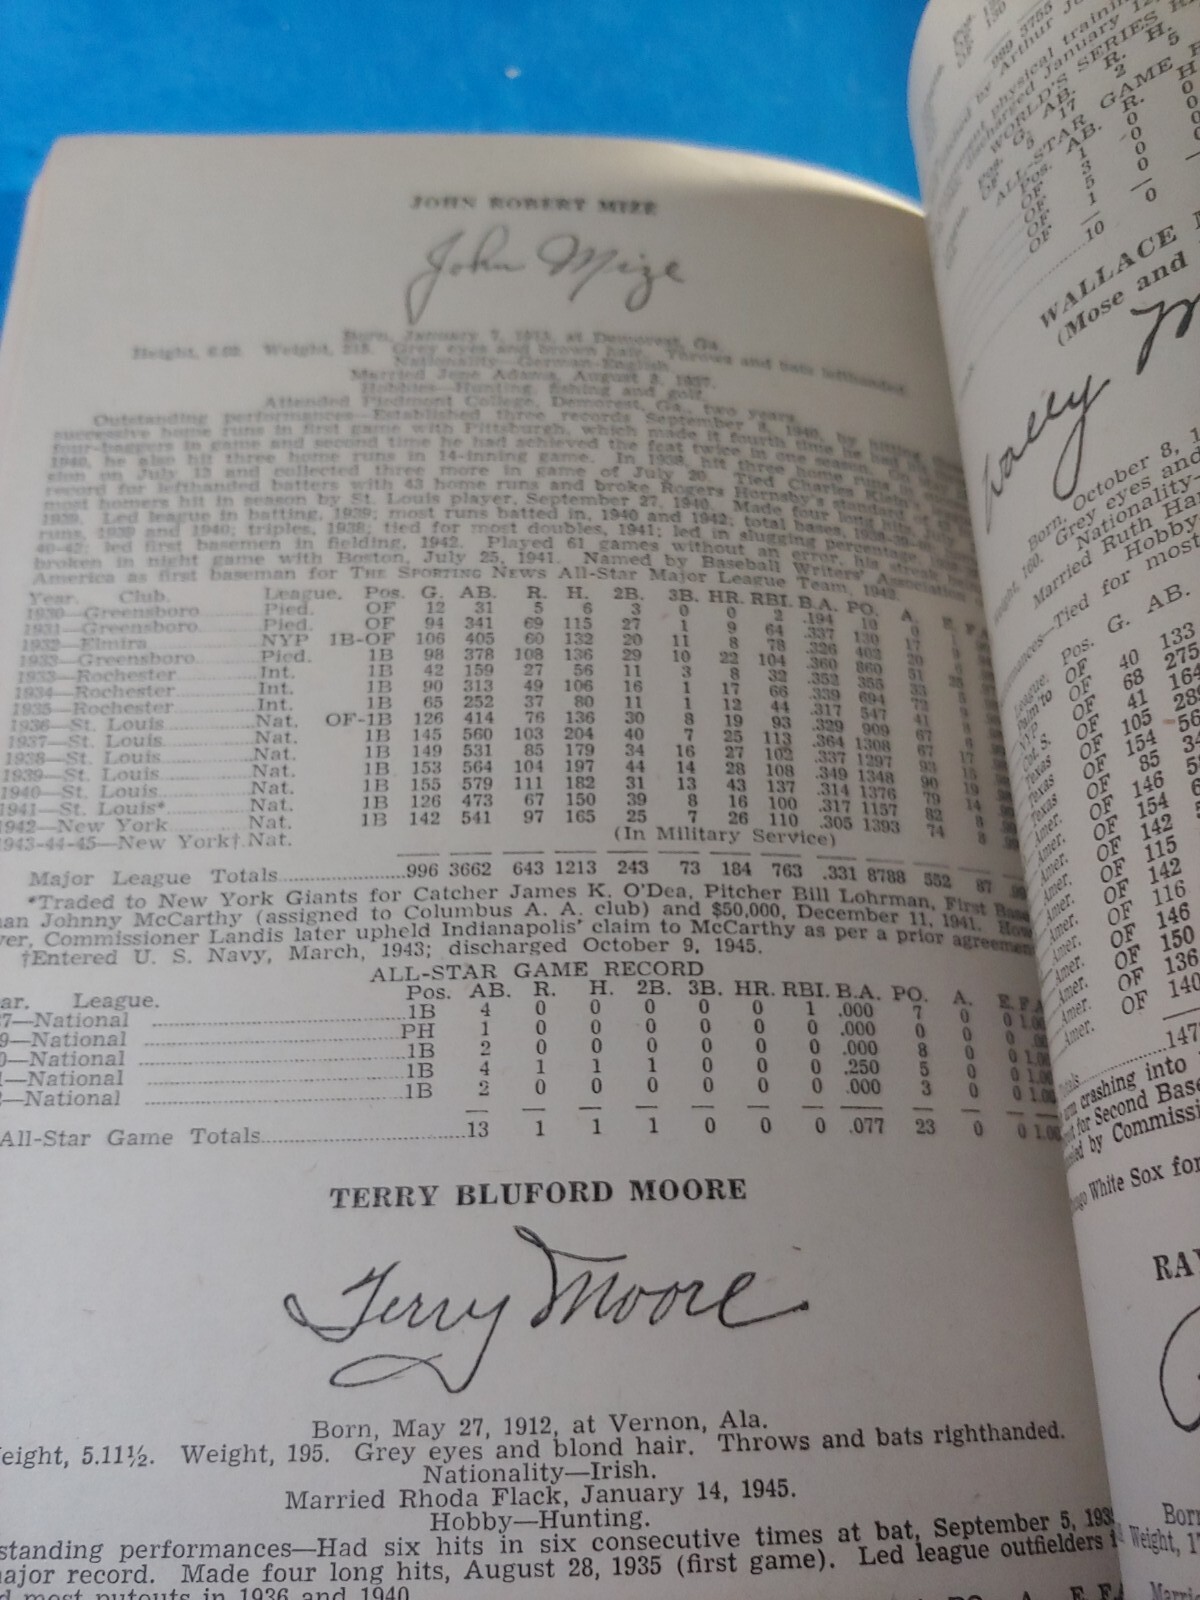 JOHN ROBERT MIZE
John Mize
Born, January 7, 1913, at Demorest, Ga.
Height, 6.02. Weight, 215. Grey eyes and brown hair. Throws and bats lefthanded.
Nationality—German-English.
Married Jene Adams, August 8, 1937.
Hobbies—Hunting, fishing and golf.
Attended Piedmont College, Demorest, Ga., two years.
Outstanding performances—Established three records September 8, 1940, by hitting
successive home runs in first game with Pittsburgh, which made it fourth time he had
four-baggers in game and second time he had achieved the feat twice in one season.
1940, he also hit three home runs in 14-inning game. In 1938, hit three home runs in
sion on July 13 and collected three more in game of July 20. Tied Charles Klein's
record for lefthanded batters with 43 home runs and broke Rogers Hornsby's standard of
most homers hit in season by St. Louis player, September 27, 1940. Made four long hits, July
1939. Led league in batting, 1939; most runs batted in, 1940 and 1942; total bases, 1938-39-40;
runs, 1939 and 1940; triples, 1938; tied for most doubles, 1941; led in slugging percentage,
40-42; led first basemen in fielding, 1942. Played 61 games without an error, his streak being
broken in night game with Boston, July 25, 1941. Named by Baseball Writers' Association
America as first baseman for THE SPORTING NEWS All-Star Major League Team, 1942.
Year. Club. League. Pos. G. AB. R. H. 2B. 3B. HR. RBI. B.A. PO. A. E. F.A.
1930—Greensboro Pied. OF 12 31 5 6 3 0 0 2 .194 10 0
1931—Greensboro Pied. OF 94 341 69 115 27 1 9 64 .337 130 17
1932—Elmira NYP 1B-OF 106 405 60 132 20 11 8 78 .326 402 20
1933—Greensboro Pied. 1B 98 378 108 136 29 10 22 104 .360 860 51
1933—Rochester Int. 1B 42 159 27 56 11 3 8 32 .352 355 33
1934—Rochester Int. 1B 90 313 49 106 16 1 17 66 .339 694 72
1935—Rochester Int. 1B 65 252 37 80 11 1 12 44 .317 547 41
1936—St. Louis Nat. OF-1B 126 414 76 136 30 8 19 93 .329 909 67
1937—St. Louis Nat. 1B 145 560 103 204 40 7 25 113 .364 1308 67 17
1938—St. Louis Nat. 1B 149 531 85 179 34 16 27 102 .337 1297 93 15
1939—St. Louis Nat. 1B 153 564 104 197 44 14 28 108 .349 1348 90 19
1940—St. Louis Nat. 1B 155 579 111 182 31 13 43 137 .314 1376 79 14
1941—St. Louis* Nat. 1B 126 473 67 150 39 8 16 100 .317 1157 82 8
1942—New York Nat. 1B 142 541 97 165 25 7 26 110 .305 1393 74 8
1943-44-45—New York†. Nat. (In Military Service)
Major League Totals 996 3662 643 1213 243 73 184 763 .331 8788 552 87
*Traded to New York Giants for Catcher James K. O'Dea, Pitcher Bill Lohrman, First Base-
man Johnny McCarthy (assigned to Columbus A. A. club) and $50,000, December 11, 1941. How-
ver, Commissioner Landis later upheld Indianapolis' claim to McCarthy as per a prior agreement
†Entered U. S. Navy, March, 1943; discharged October 9, 1945.
ALL-STAR GAME RECORD
ar. League. Pos. AB. R. H. 2B. 3B. HR. RBI. B.A. PO. A. E. F.A.
7—National 1B 4 0 0 0 0 0 1 .000 7 0 0 1.00
9—National PH 1 0 0 0 0 0 0 .000 0 0 0 .00
0—National 1B 2 0 0 0 0 0 0 .000 8 0 0 1.00
1—National 1B 4 1 1 1 0 0 0 .250 5 0 0 1.00
—National 1B 2 0 0 0 0 0 0 .000 3 0 0 1.00
All-Star Game Totals 13 1 1 1 0 0 0 .077 23 0 0 1.00
TERRY BLUFORD MOORE
Terry Moore
Born, May 27, 1912, at Vernon, Ala.
eight, 5.11½. Weight, 195. Grey eyes and blond hair. Throws and bats righthanded.
Nationality—Irish.
Married Rhoda Flack, January 14, 1945.
Hobby—Hunting.
standing performances—Had six hits in six consecutive times at bat, September 5, 193
ajor record. Made four long hits, August 28, 1935 (first game). Led league outfielders i
d most putouts in 1936 and 1940.
PO. A. E. F.A
999 3755
by Arthur
physical training
discharged January 12,
WORLD'S SERIES R
Pos. G. AB. R. H.
OF 5 17 2 5
ALL-STAR GAME
Pos. AB. R. H
OF 1 0 0
OF 3 0 0
OF 5 0 0
OF 1 0 0
10 0
WALLACE
(Mose and
Wally M
Born, October 8, 1
Weight, 160. Grey eyes and
Nationality—
Married Ruth Ha
Hobby
mances—Tied for most
League. Pos. G. AB.
Palm'to OF 40 133
NYP OF 68 275
Cot. S. OF 41 164
Texas OF 105 289
Texas OF 154 56
Texas OF 85 34
Amer. OF 146 5
Amer. OF 154 6
Amer. OF 142 5
Amer. OF 115
Amer. OF 142
Amer. OF 116
Amer. OF 146
Amer. OF 150
Amer. OF 136
Amer. OF 140
147
arm crashing into
for Second Base
by Commissi
White Sox for
RAY
Born
Weight, 1
Marri